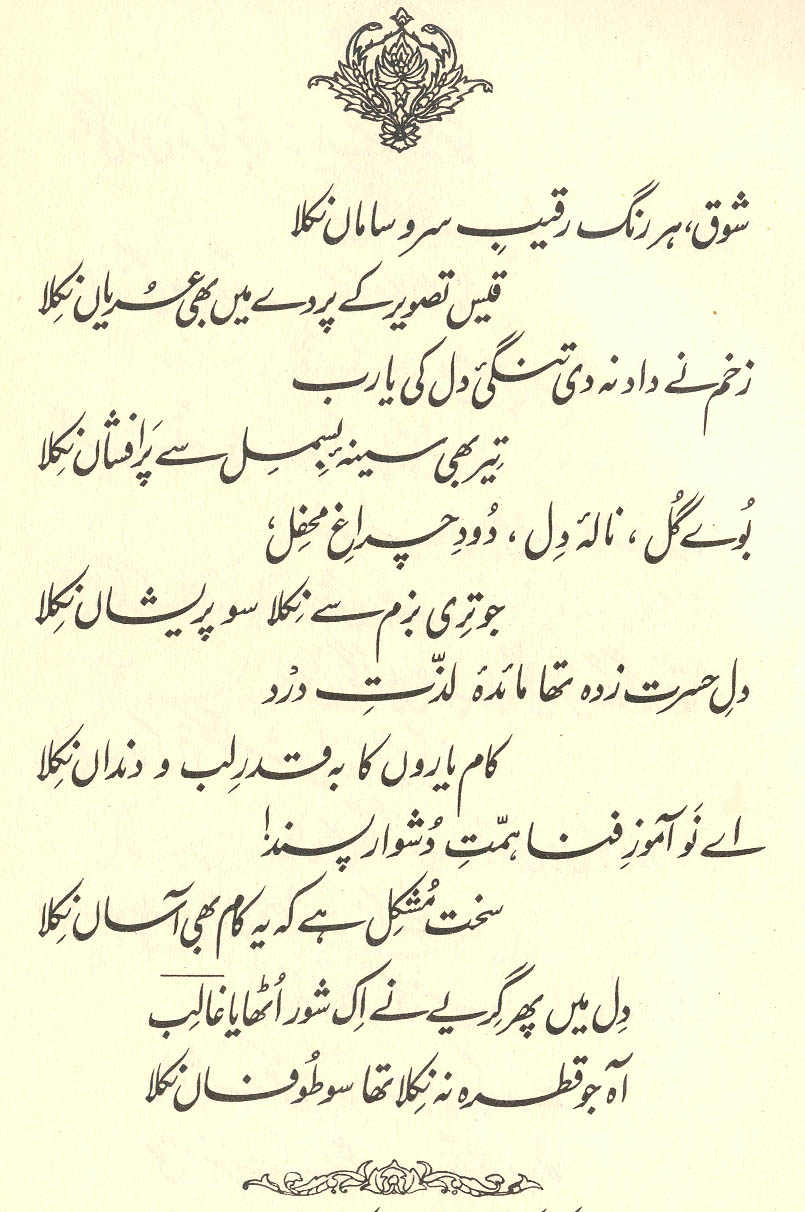 شوق، ہر رنگ رقیبِ سر و ساماں نکلا
قیس تصویر کے پردے میں بھی عُریاں نِکلا
زخم نے داد نہ دی تنگیٔ دل کی یارب
تِیر بھی سینۂ بِسمِل سے پَرافشاں نِکلا
بُوے گُل ، نالۂ دِل ، دُودِ چراغِ محفِل
جو تِری بزم سے نِکلا سو پریشاں نِکلا
دلِ حسرت زدہ تھا مائدۂ لذّتِ درْد
کام یاروں کا بہ قدرِ لب و دنداں نِکلا
اے نَو آموزِ فنا ہمّتِ دُشوار پسند!
سخت مُشکِل ہے کہ یہ کام بھی آساں نِکلا
دِل میں پھر گِریے نے اِک شور اُٹھایا غالِب
آہ جو قطرہ نہ نِکلا تھا سو طُوفاں نکلا